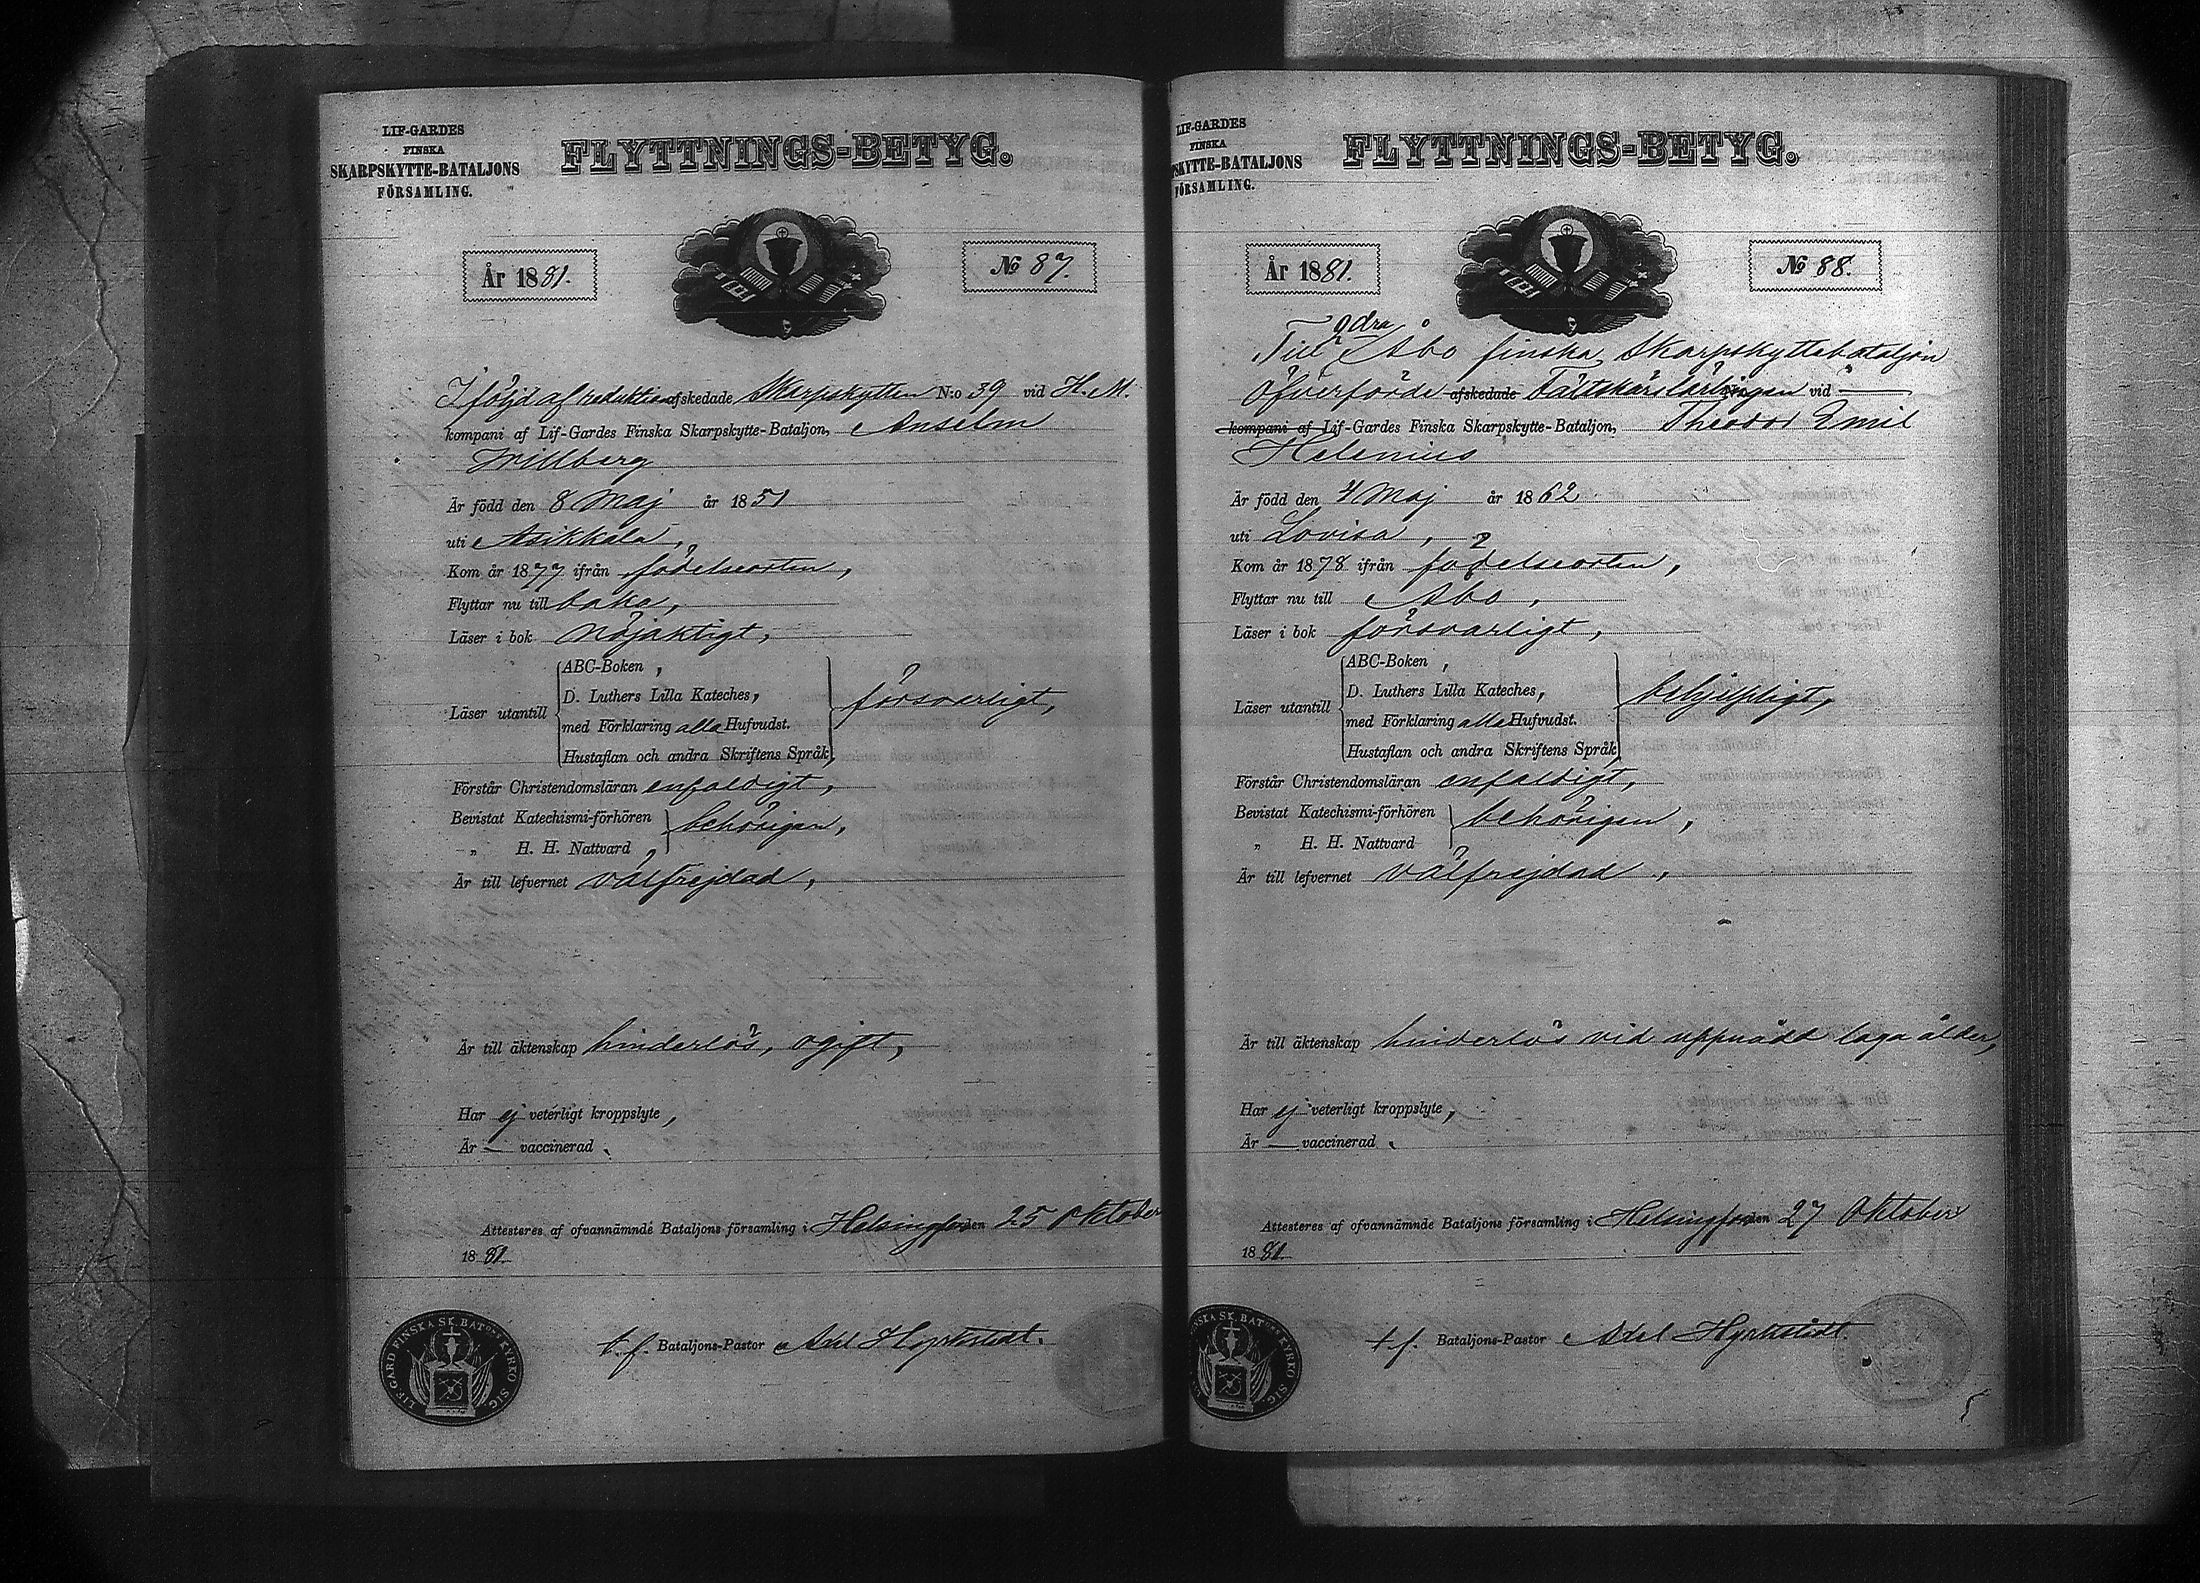 LIF-GARDES
FINSKA
SKARPSKYTTE-BATALJONS
FÖRSAMLING.
FLYTTNINGS-BETYG.
År 1881.
№ 87.
I följd af reduktion afskedade Skarpskytten N:o 39 vid H. M.
kompani af Lif-Gardes Finska Skarpskytte-Bataljon, Anselm
Willberg
Är född den 8 Maj år 1851
uti Asikkala,
Kom år 1877 ifrån födelseorten,
Flyttar nu till baka,
Läser i bok nöjaktigt,
Läser utantill
ABC-Boken,
D. Luthers Lilla Kateches,
med Förklaring alla Hufvudst.
Hustaflan och andra Skriftens Språk
försvarligt,
Förstår Christendomsläran enfaldigt,
Bevistat Katechismi-förhören
„ H. H. Nattvard
behörigen,
Är till lefvernet välfrejdad,
Är till äktenskap hinderlös, ogift,
Har ej veterligt kroppslyte,
Är — vaccinerad.
Attesteres af ofvannämnde Bataljons församling i Helsingfors den 25 Oktober
1881.
t. f. Bataljons-Pastor Axel Hyrkstedt.
LIF-GARD FINSKA SK. BATONS KYRKO SIG.
LIF-GARDES
FINSKA
SKYTTE-BATALJONS
FÖRSAMLING.
FLYTTNINGS-BETYG.
År 1881.
№ 88.
Till 2dra Åbo finska Skarpskyttebataljon
Öfverförde afskedade Fältskärslärlingen vid —
kompani af Lif-Gardes Finska Skarpskytte-Bataljon, Theodor Emil
Helenius
Är född den 4 Maj år 1862
uti Lovisa,
Kom år 1878 ifrån födelseorten,
Flyttar nu till Åbo,
Läser i bok försvarligt,
Läser utantill
ABC-Boken,
D. Luthers Lilla Kateches,
med Förklaring alla Hufvudst.
Hustaflan och andra Skriftens Språk
behjelpligt,
Förstår Christendomsläran enfaldigt,
Bevistat Katechismi-förhören
„ H. H. Nattvard
behörigen,
Är till lefvernet välfrejdad,
Är till äktenskap hinderlös vid uppnådd laga ålder,
Har ej veterligt kroppslyte,
Är — vaccinerad.
Attesteres af ofvannämnde Bataljons församling i Helsingfors den 27 Oktober
1881
t f. Bataljons-Pastor Axel Hyrkstedt.
NSKA SK. BATONS KYRKO SIG.